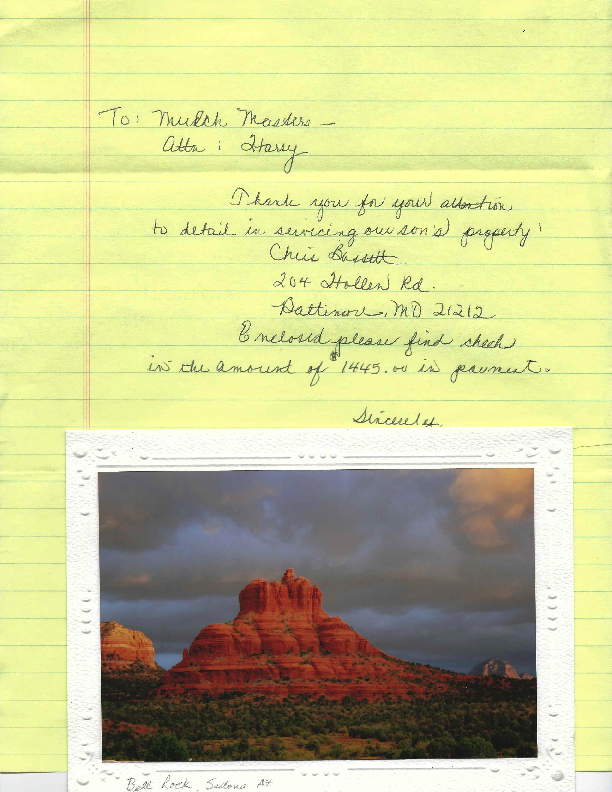 To: Mulch Masters —
Attn : Harry
Thank you for your attention
to detail in servicing our son's property!
Chris Bassett
204 Hollen Rd.
Baltimore, MD 21212
Enclosed please find check
in the amount of $1445.00 in payment.
Sincerely,
Bell Rock, Sedona AZ